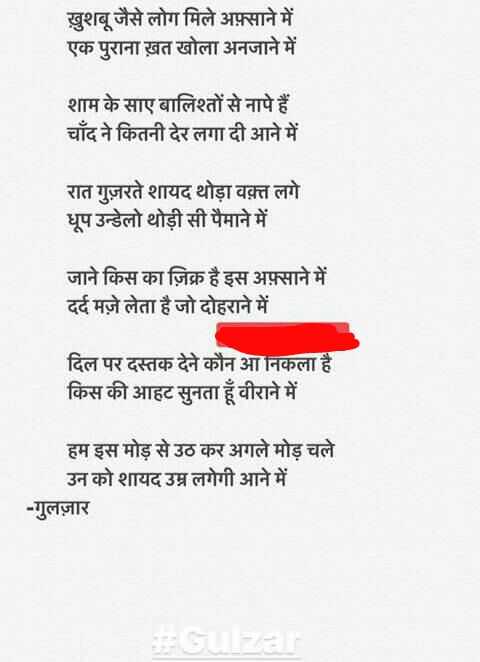 ख़ुशबू जैसे लोग मिले अफ़्साने में
एक पुराना ख़त खोला अनजाने में
शाम के साए बालिश्तों से नापे हैं
चाँद ने कितनी देर लगा दी आने में
रात गुज़रते शायद थोड़ा वक़्त लगे
धूप उन्डेलो थोड़ी सी पैमाने में
जाने किस का ज़िक्र है इस अफ़्साने में
दर्द मज़े लेता है जो दोहराने में
दिल पर दस्तक देने कौन आ निकला है
किस की आहट सुनता हूँ वीराने में
हम इस मोड़ से उठ कर अगले मोड़ चले
उन को शायद उम्र लगेगी आने में
-गुलज़ार
#Gulzar